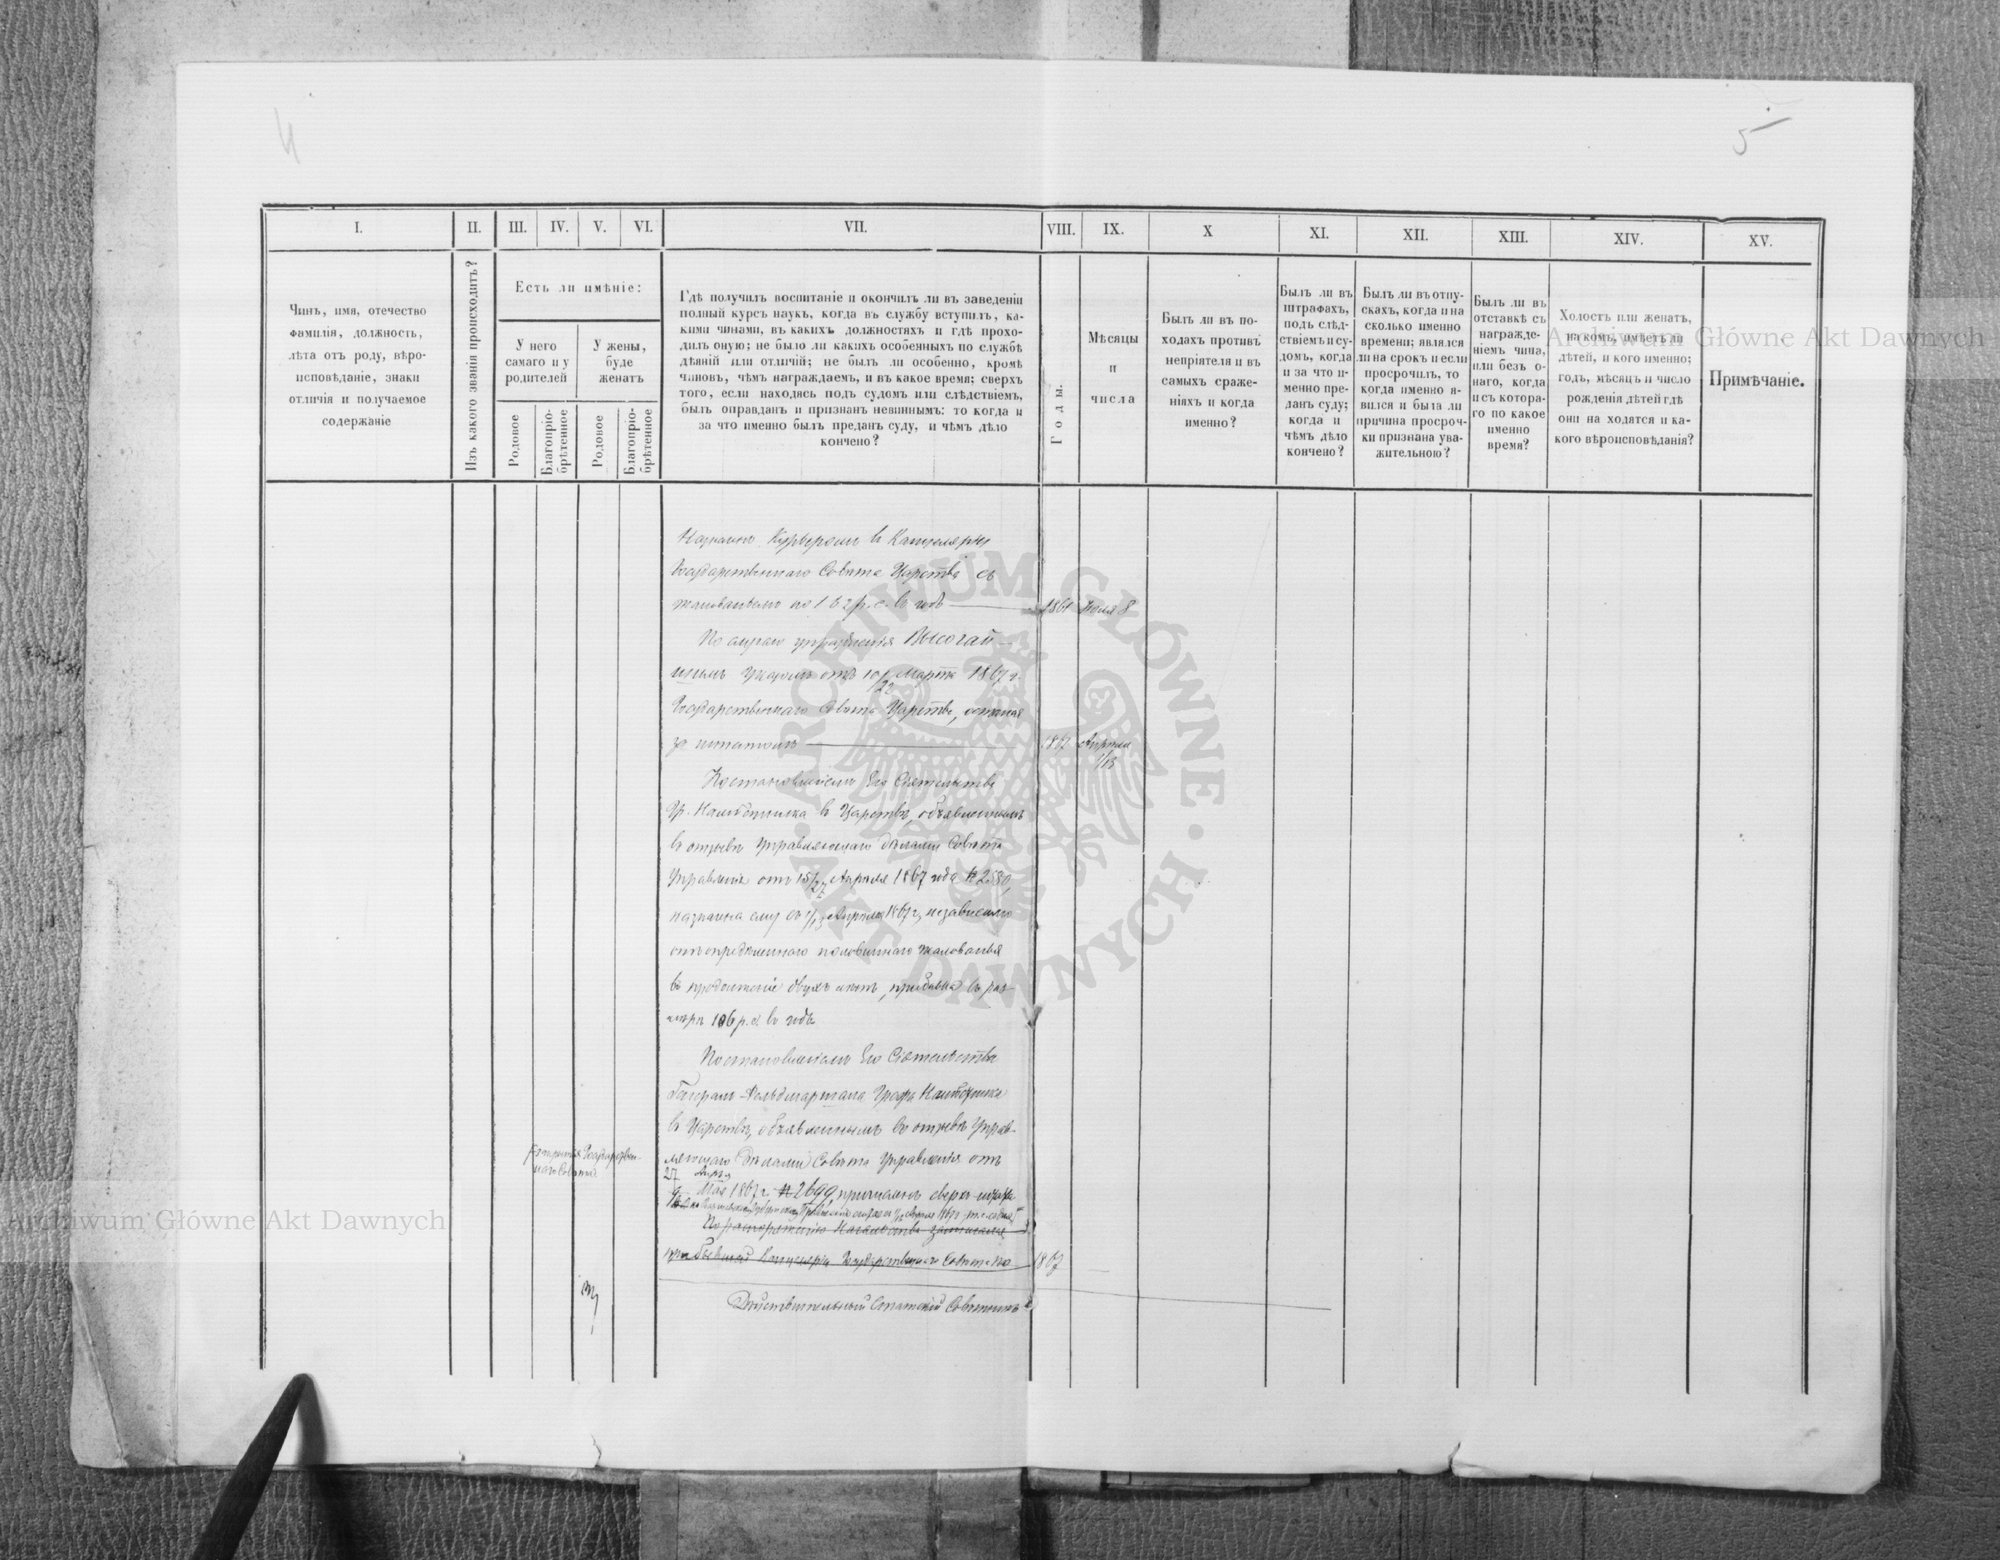 4
5
I.
II.
III.
IV.
V.
VI.
VII.
VIII.
IX.
X
XI.
XII.
XIII.
XIV.
XV.
Чинъ, имя, отечество
фамилія, должность,
лѣта отъ роду, вѣро-
исповѣданіе, знаки
отличія и получаемое
содержаніе
Изъ какого званія происходитъ?
Есть ли имѣніе:
У него
самаго и у
родителей
У жены,
буде
женатъ
Родовое
Благопріо-
брѣтенное
Родовое
Благопріо-
брѣтенное
Гдѣ получилъ воспитаніе и окончилъ ли въ заведеніи
полный курсъ наукъ, когда въ службу вступилъ, ка-
кими чинами, въ какихъ должностяхъ и гдѣ прохо-
дилъ оную; не было ли какихъ особенныхъ по службѣ
дѣяній или отличій; не былъ ли особенно, кромѣ
чиновъ, чѣмъ награждаемъ, и въ какое время; сверхъ
того, если находясь подъ судомъ или слѣдствіемъ,
былъ оправданъ и признанъ невиннымъ: то когда и
за что именно былъ преданъ суду, и чѣмъ дѣло
кончено?
Годы.
Мѣсяцы
и
числа
Былъ ли въ по-
ходахъ противъ
непріятеля и въ
самыхъ сраже-
ніяхъ и когда
именно?
Былъ ли въ
штрафахъ,
подъ слѣд-
ствіемъ и су-
домъ, когда
и за что и-
менно пре-
данъ суду;
когда и
чѣмъ дѣло
кончено?
Былъ ли въ отпу-
скахъ, когда и на
сколько именно
времени; являлся
ли на срокъ и если
просрочилъ, то
когда именно я-
вился и была ли
причина просроч-
ки признана ува-
жительною?
Былъ ли въ
отставкѣ съ
награжде-
ніемъ чина,
или безъ о-
наго, когда
и съ котора-
го по какое
именно
время?
Холостъ или женатъ,
на комъ, имѣетъ ли
дѣтей, и кого именно;
годъ, мѣсяцъ и число
рожденія дѣтей гдѣ
они на ходятся и ка-
кого вѣроисповѣданія?
Примѣчаніе.
Назначенъ Курьеромъ в Канцелярію
Государственнаго Совѣта Царства съ
жалованьемъ по 162 р. с. въ годъ
1861 Іюля 8
По случаю упраздненія Высочай-
шимъ Указомъ отъ 10/22 Марта 1867 г.
Государственнаго Совѣта Царства, остался
за штатомъ
1867 Апрѣля 1/13
Постановленіемъ Его Сіятельства
Гр. Намѣстника в Царствѣ, объявленнымъ
в отзывѣ Управляющаго дѣлами Совѣта
Управленія отъ 15/27 Апрѣля 1867 года № 2580,
назначена ему съ 1/13 Апрѣля 1867 г., независимо
отъ опредѣленнаго половиннаго жалованья
в продолженіе двухъ лѣтъ, прибавка въ раз-
мѣрѣ 106 р. с. въ годъ.
Постановленіемъ Его Сіятельства
Генералъ-Фельдмаршала Графа Намѣстника
въ Царствѣ, объявленнымъ въ отзывѣ Управ-
ляющаго Дѣлами Совѣта Управленія отъ
27 Апрѣля
Мая 1867 г. № 2699, причисленъ сверхъ штата
По распоряженію Начальства записанъ
при бывшей Канцеляріи Государственнаго Совѣта
1867
Государствен-
наго Совѣта
Дѣйствительный Статскій Совѣтникъ
ARCHIWUM GŁÓWNE AKT DAWNYCH
Archiwum Główne Akt Dawnych
Archiwum Główne Akt Dawnych